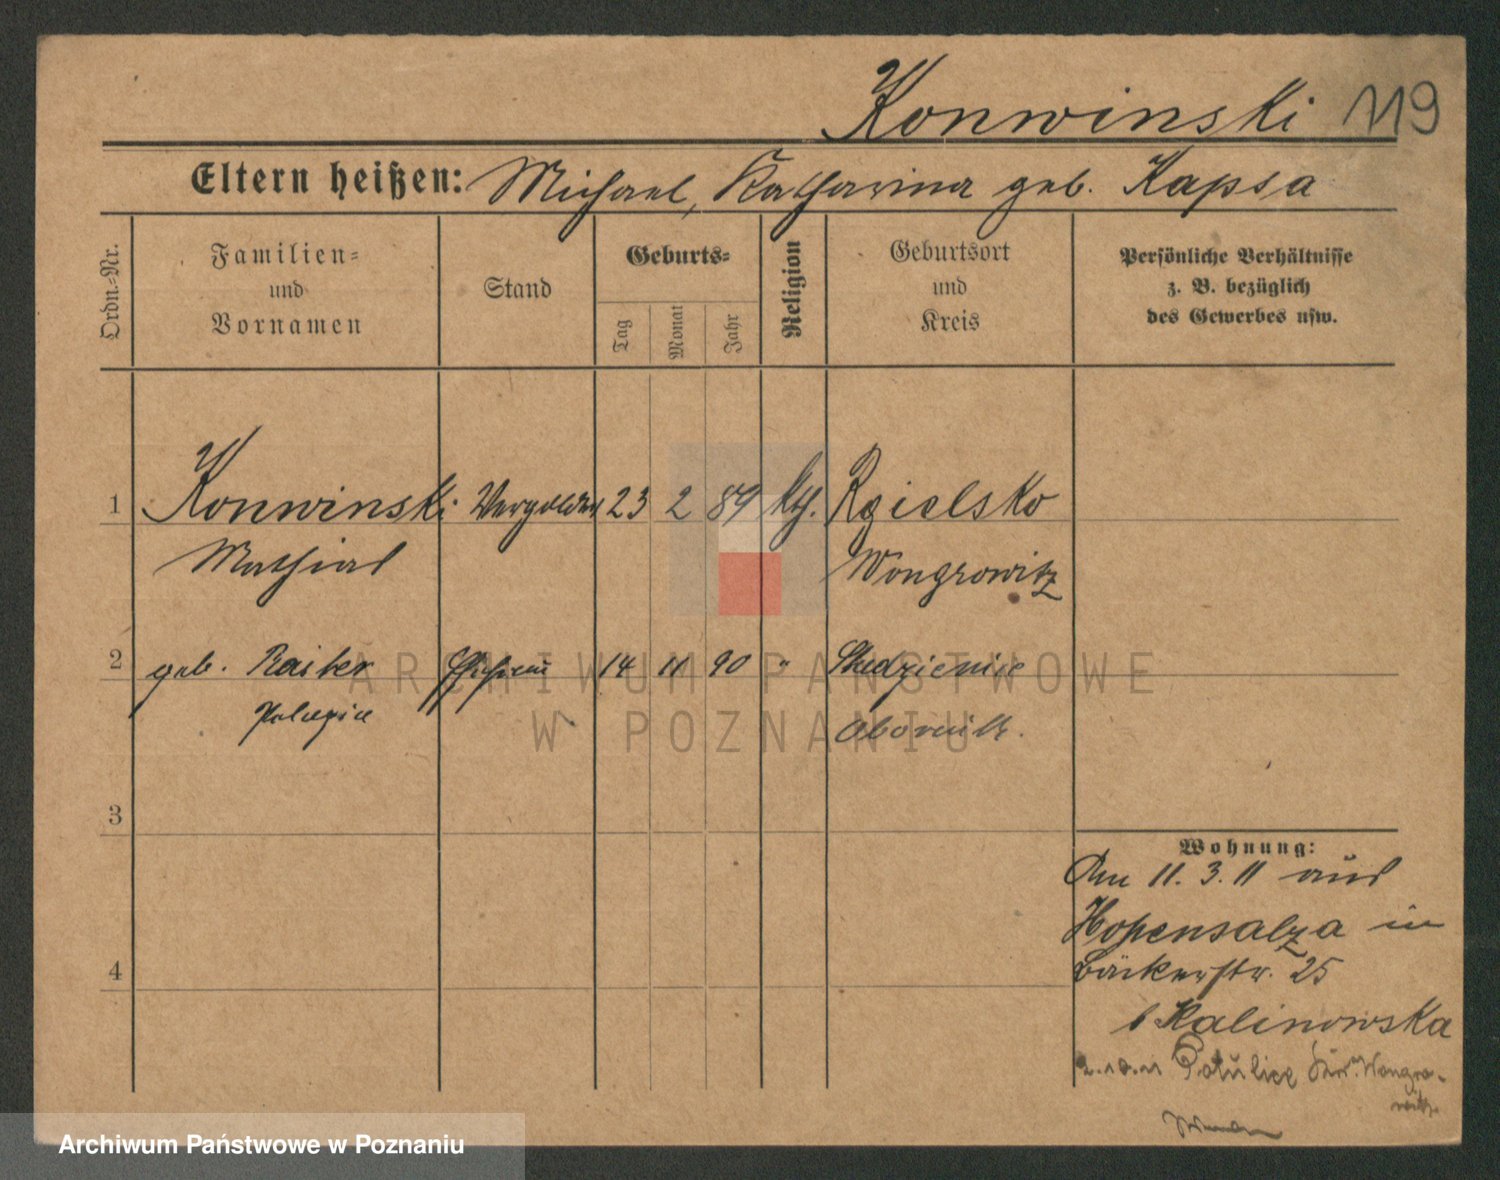 Konwinski 119
Eltern heißen: Michael, Katharina geb. Kapsa
Ordn.-Nr.
Familien-
und
Vornamen
Stand
Geburts-
Tag
Monat
Jahr
Religion
Geburtsort
und
Kreis
Persönliche Verhältnisse
z. B. bezüglich
des Gewerbes usw.
1 Konwinski Vergolder 23 2 89 kth. Rgielsko
Mathias Wongrowitz
2 geb. Raiter Ehefrau 14 11 90 "
Pelagia Obornik.
3
Wohnung:
Am 11. 3. 11 aus
Hohensalza in
Bäckerstr. 25
b Kalinowska
4
2.10.11 Potulice Kr. Wongro-
witz.
ARCHIWUM PAŃSTWOWE
W POZNANIU
Archiwum Państwowe w Poznaniu